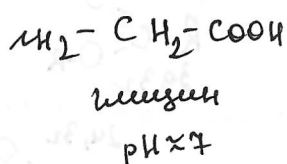 NH₂ - CH₂ - COOH
глицин
pH ≈ 7